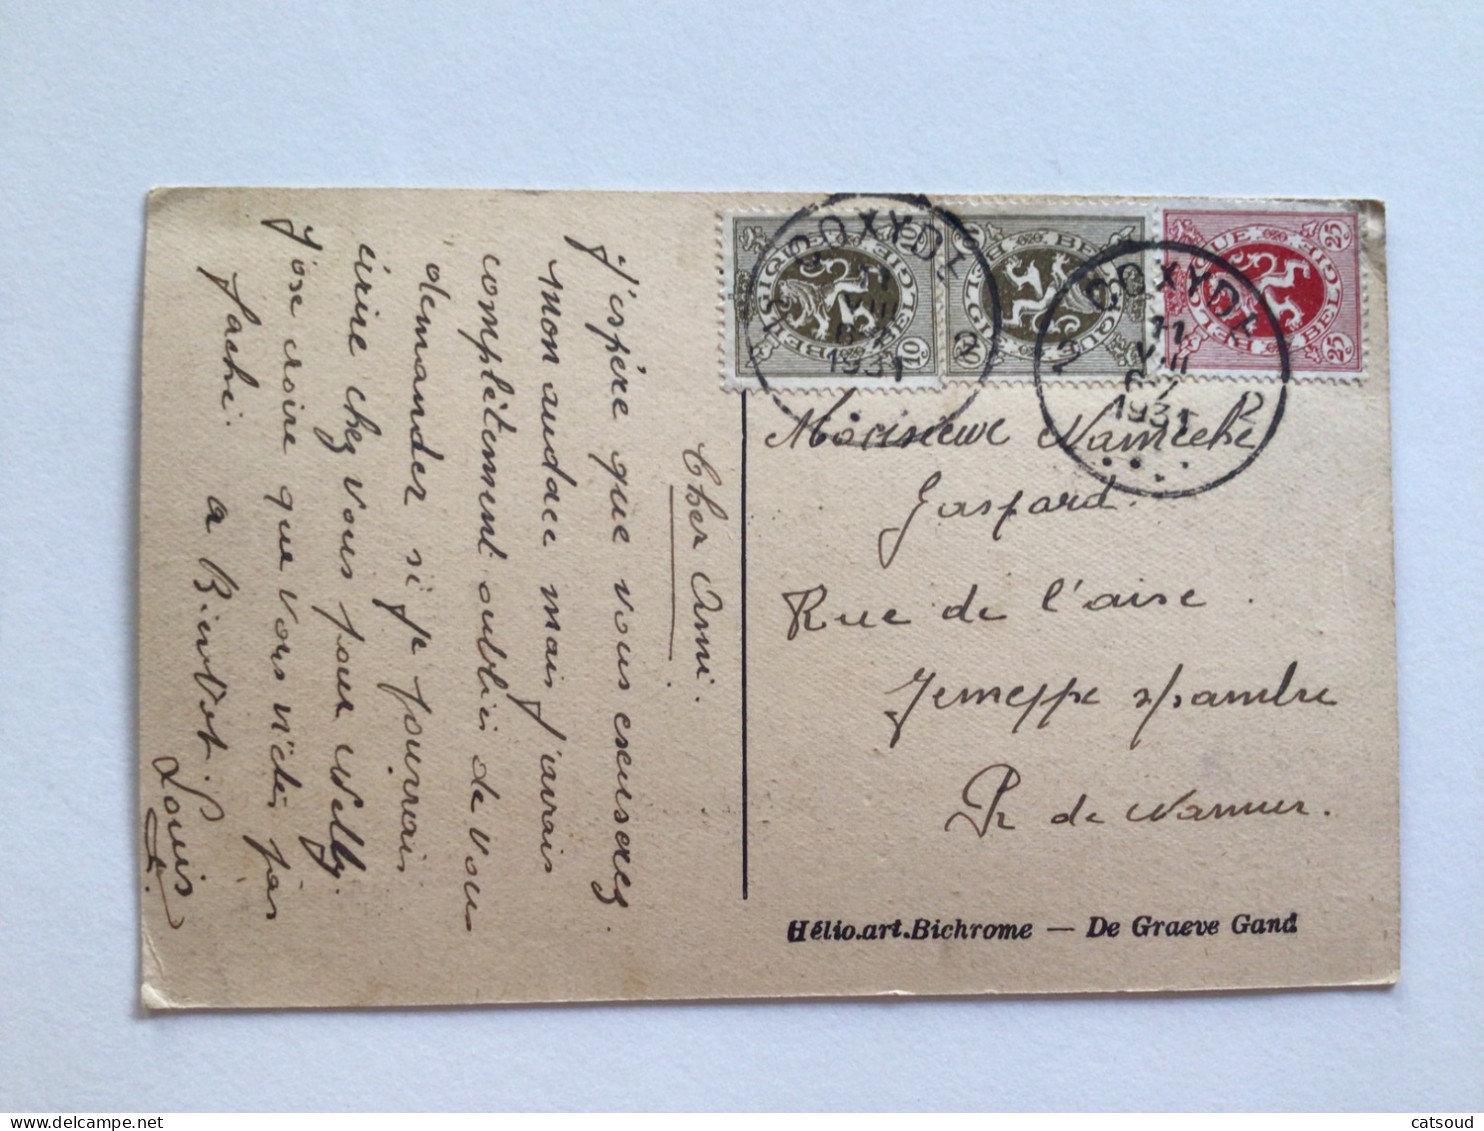 Cher Ami.
J'espère que vous excuserez
mon audace mais j'aurais
complètement oublié de vous
demander si je pourrais
écrire chez vous pour Nelly.
J'ose croire que vous n'êtes pas
faché. a Bientôt.
Louis
Monsieur Namèche
Gaspard.
Rue de l'aise.
Jemeppe s/Sambre
Pr de Namur.
Hélio.art.Bichrome — De Graeve Gand
COXYDE
11
VIII
1931
COXYDE
11
VIII
1931
BELGIQUE BELGIE
10c
BELGIE BELGIQUE
10c
BELGIQUE BELGIE
25c
catsoud